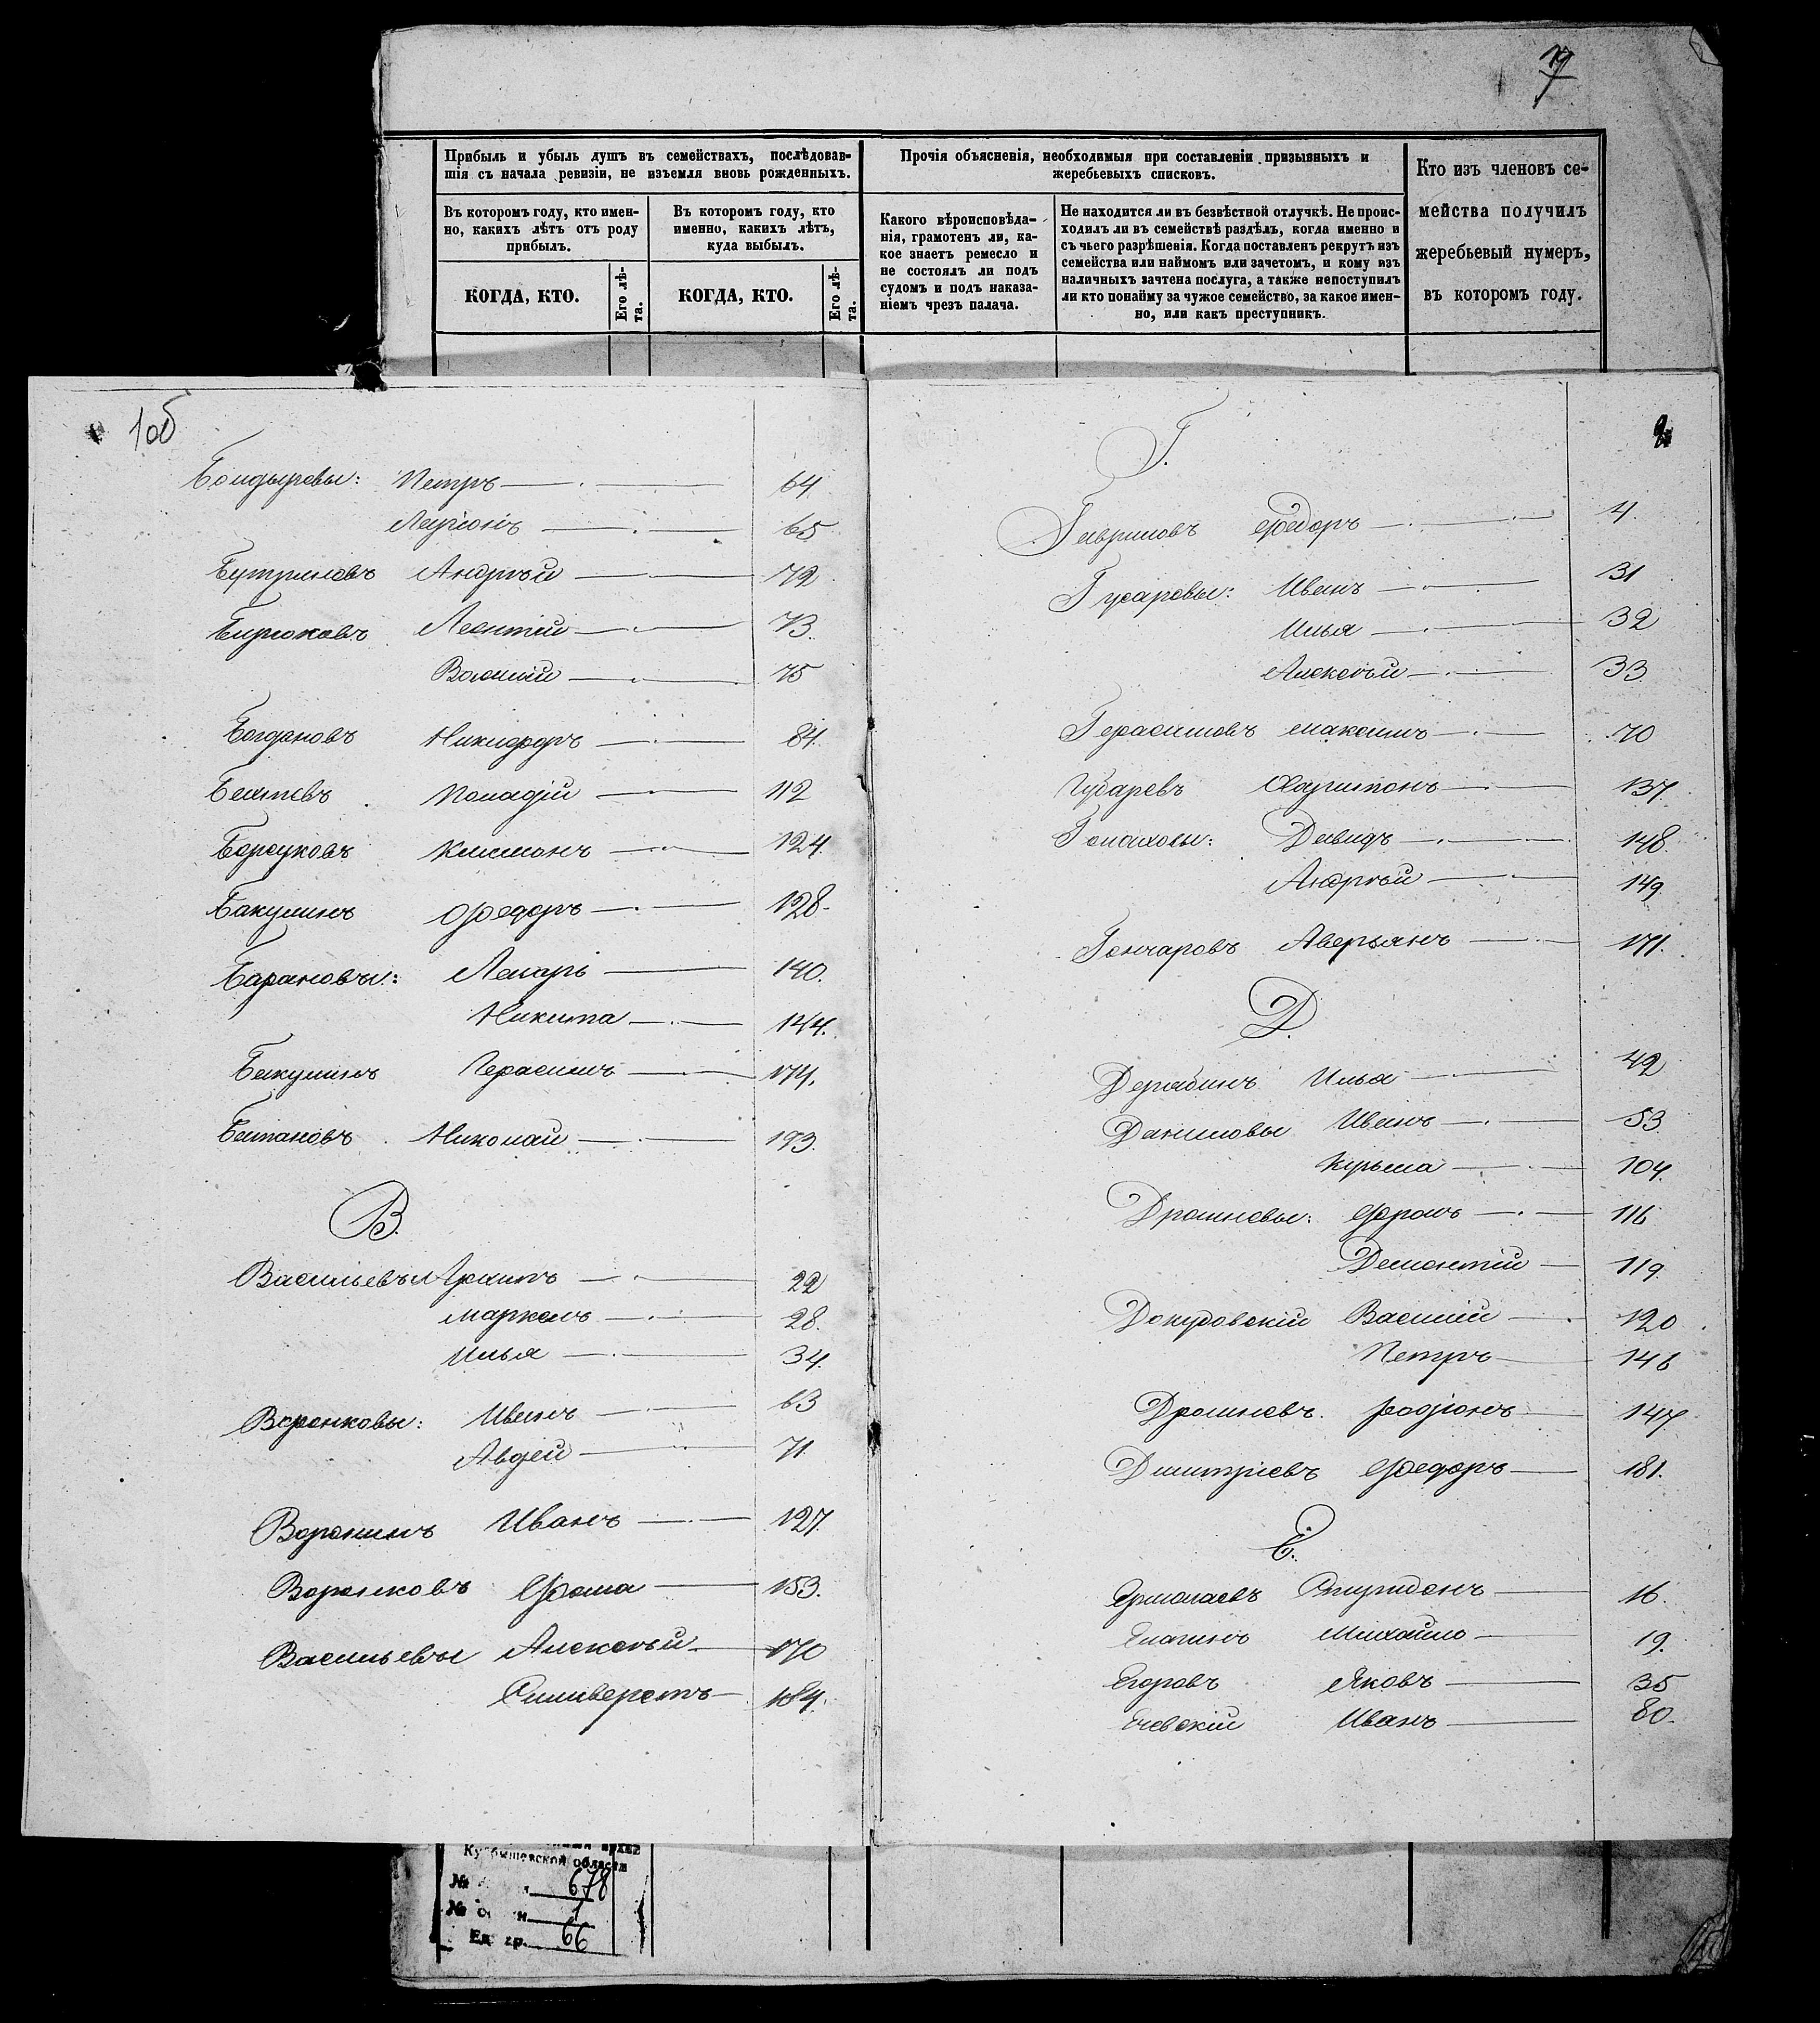 7
Прибыль и убыль душъ въ семействахъ, послѣдовав-
шія съ начала ревизіи, не изъемля вновь рожденныхъ.
Въ которомъ году, кто имен-
но, какихъ лѣтъ отъ роду
прибылъ.
Въ которомъ году, кто
именно, какихъ лѣтъ,
куда выбылъ.
КОГДА, КТО.
Его лѣ-
та.
КОГДА, КТО.
Его лѣ-
та.
Прочія объясненія, необходимыя при составленіи призывныхъ и
жеребьевыхъ списковъ.
Какого вѣроисповѣда-
нія, грамотенъ ли, ка-
кое знаетъ ремесло и
не состоялъ ли подъ
судомъ и подъ наказа-
ніемъ чрезъ палача.
Не находится ли въ безвѣстной отлучкѣ. Не проис-
ходилъ ли въ семействѣ раздѣлъ, когда именно и
съ чьего разрѣшенія. Когда поставленъ рекрутъ изъ
семейства или наймомъ или зачетомъ, и кому изъ
наличныхъ зачтена послуга, а также непоступилъ
ли кто понайму за чужое семейство, за какое имен-
но, или какъ преступникъ.
Кто изъ членовъ се-
мейства получилъ
жеребьевый нумеръ,
въ которомъ году.
1об
Бондыревы: Петръ 64
Ларіонъ 65
Бутримовъ Андрѣй 72
Бирюковъ Леонтій 73.
Василій 75
Богдановъ Никифоръ 84.
112
Борсуковъ Климонъ 124.
Бакулинъ Федоръ 128.
Барановы: Лазарь 140.
Никита 144.
Бакулинъ Герасимъ 174.
Николай 193.
В.
Васильевы Архипъ 22
Маркелъ 28.
Илья 34.
Воронковы: Иванъ 63
Авдей 71.
Воронинъ Иванъ 127.
Воронковъ Фома 153.
Васильевы Алексѣй 170
Силиверстъ 184.
2
Г.
Гавриловъ Федоръ 4.
Гусаровы: Иванъ 31
Илья 32
Алексѣй 33.
Герасимовъ Максимъ 70
Губаревъ Харитонъ 137.
Давидъ 148.
Андрѣй 149.
Гончаровъ Аверьянъ 171.
Д.
Дерябинъ Илья 42
Даниловы Иванъ 53.
Курьма 104.
Фролъ 116
Дементій 119.
Докудовскій Василій 120.
Петръ 146
Родіонъ 147.
Дмитріевъ Федоръ 181.
Е.
Ермолаевъ Спиридонъ 16.
Елагинъ Михайло 19.
Егоровъ Яковъ 35
Иванъ 80.
Куйбышевской области
№ 678
№ 1
Ед. хр. 66